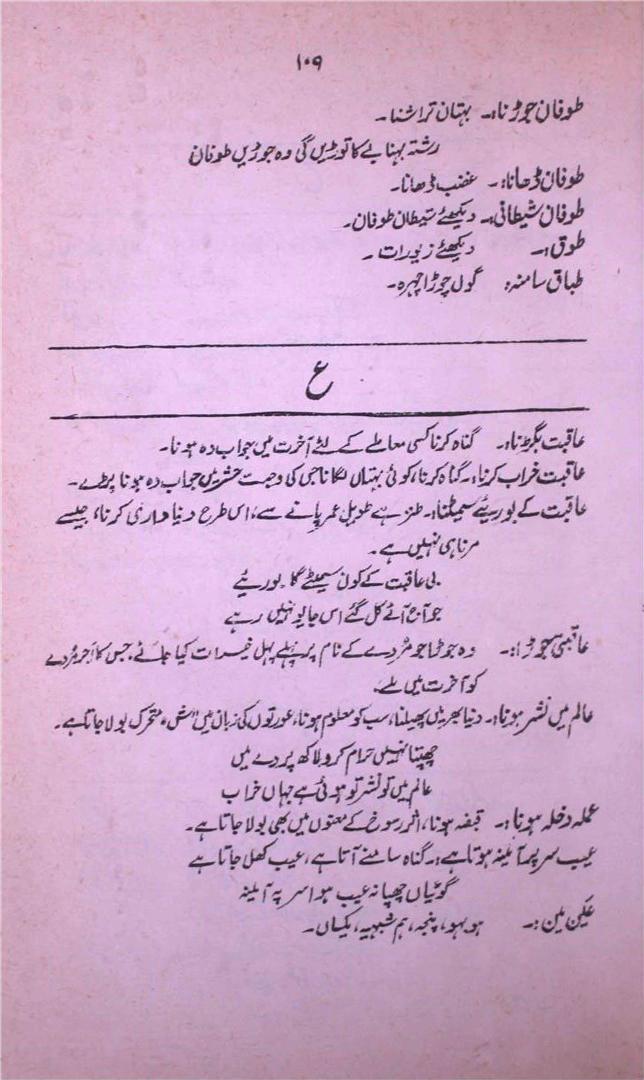 ۱۰۹
طوفان جوڑنا:۔ بہتان تراشنا۔
رشتہ بہناپے کا توڑیں گی وہ جوڑیں طوفان
طوفان ڈھانا:۔ غضب ڈھانا۔
طوفان شیطانی:۔ دیکھئے شیطان طوفان۔
طوق:۔ دیکھئے زیورات۔
طباق سا منہ: گول چوڑا چہرہ۔
ع
عاقبت بگڑنا:۔ گناہ کرنا کسی معاملے کے لئے آخرت میں جواب دہ ہونا۔
عاقبت خراب کرنا:۔ گناہ کرنا، کوئی بہتان لگانا جس کی وجہ سے حشر میں جواب دہ ہونا پڑے۔
عاقبت کے بوریئے سمیٹنا:۔ طنز ہے طویل عمر پانے سے، اس طرح دنیا داری کرنا، جیسے
مرنا ہی نہیں ہے۔
بی عاقبت کے کون سمیٹے گا بوریئے
جو آج آئے کل گئے اس جا پو نہیں رہے
عاقبتی جوڑا:۔ وہ جوڑا جو مُردے کے نام پر پہلے پہل خیرات کیا جائے، جس کا اجر مُردے
کو آخرت میں ملے۔
عالم میں نشر ہونا:۔ دنیا بھر میں پھیلنا، سب کو معلوم ہونا، عورتوں کی زبان میں "ش" متحرک بولا جاتا ہے۔
چھپتا نہیں حرام کرو لاکھ پردے میں
عالم میں تو نشر تو ہوئی ہے جہاں خراب
عملہ دخلہ ہونا:۔ قبضہ ہونا، اثر رسوخ کے معنوں میں بھی بولا جاتا ہے۔
عیب سر پہ آئینہ ہوتا ہے:۔ گناہ سامنے آتا ہے، عیب کھل جاتا ہے
گوئیاں چھپا نہ عیب ہوا سر پہ آئینہ
عین مین:۔ ہوبہو، پنجہ، ہم شبہیہ، یکساں۔